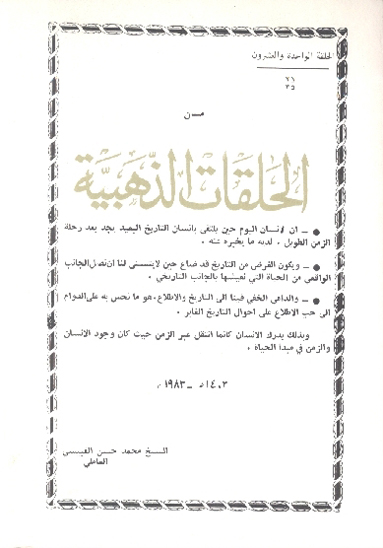 الحلقة الواحدة والعشرون
٢١
٣٥
من
الحلقات الذهبية
● ـ ان لانسان اليوم حين يلتقى بانسان التاريخ البعيد يجد بعد رحلة
الزمن الطويل ، لديه ما يخبره عنه ٠
● ـ ويكون الغرض من التاريخ قد ضاع حين لايتسنى لنا ان نصل الجانب
الواقعي من الحياة التي نعيشها بالجانب التاريخي ٠
● ـ والداعي الخفي فينا الى التاريخ والاطلاع، هو ما نحس به على الدوام
الى حب الاطلاع على احوال التاريخ الغابر ٠
وبذلك يدرك الانسان كانما انتقل عبر الزمن حيث كان وجود الانسان
والزمن في مبدا الحياة ٠
١٤٠٣هـ ـ ١٩٨٣م
الشيخ محمد حسن القبيسي
العاملي